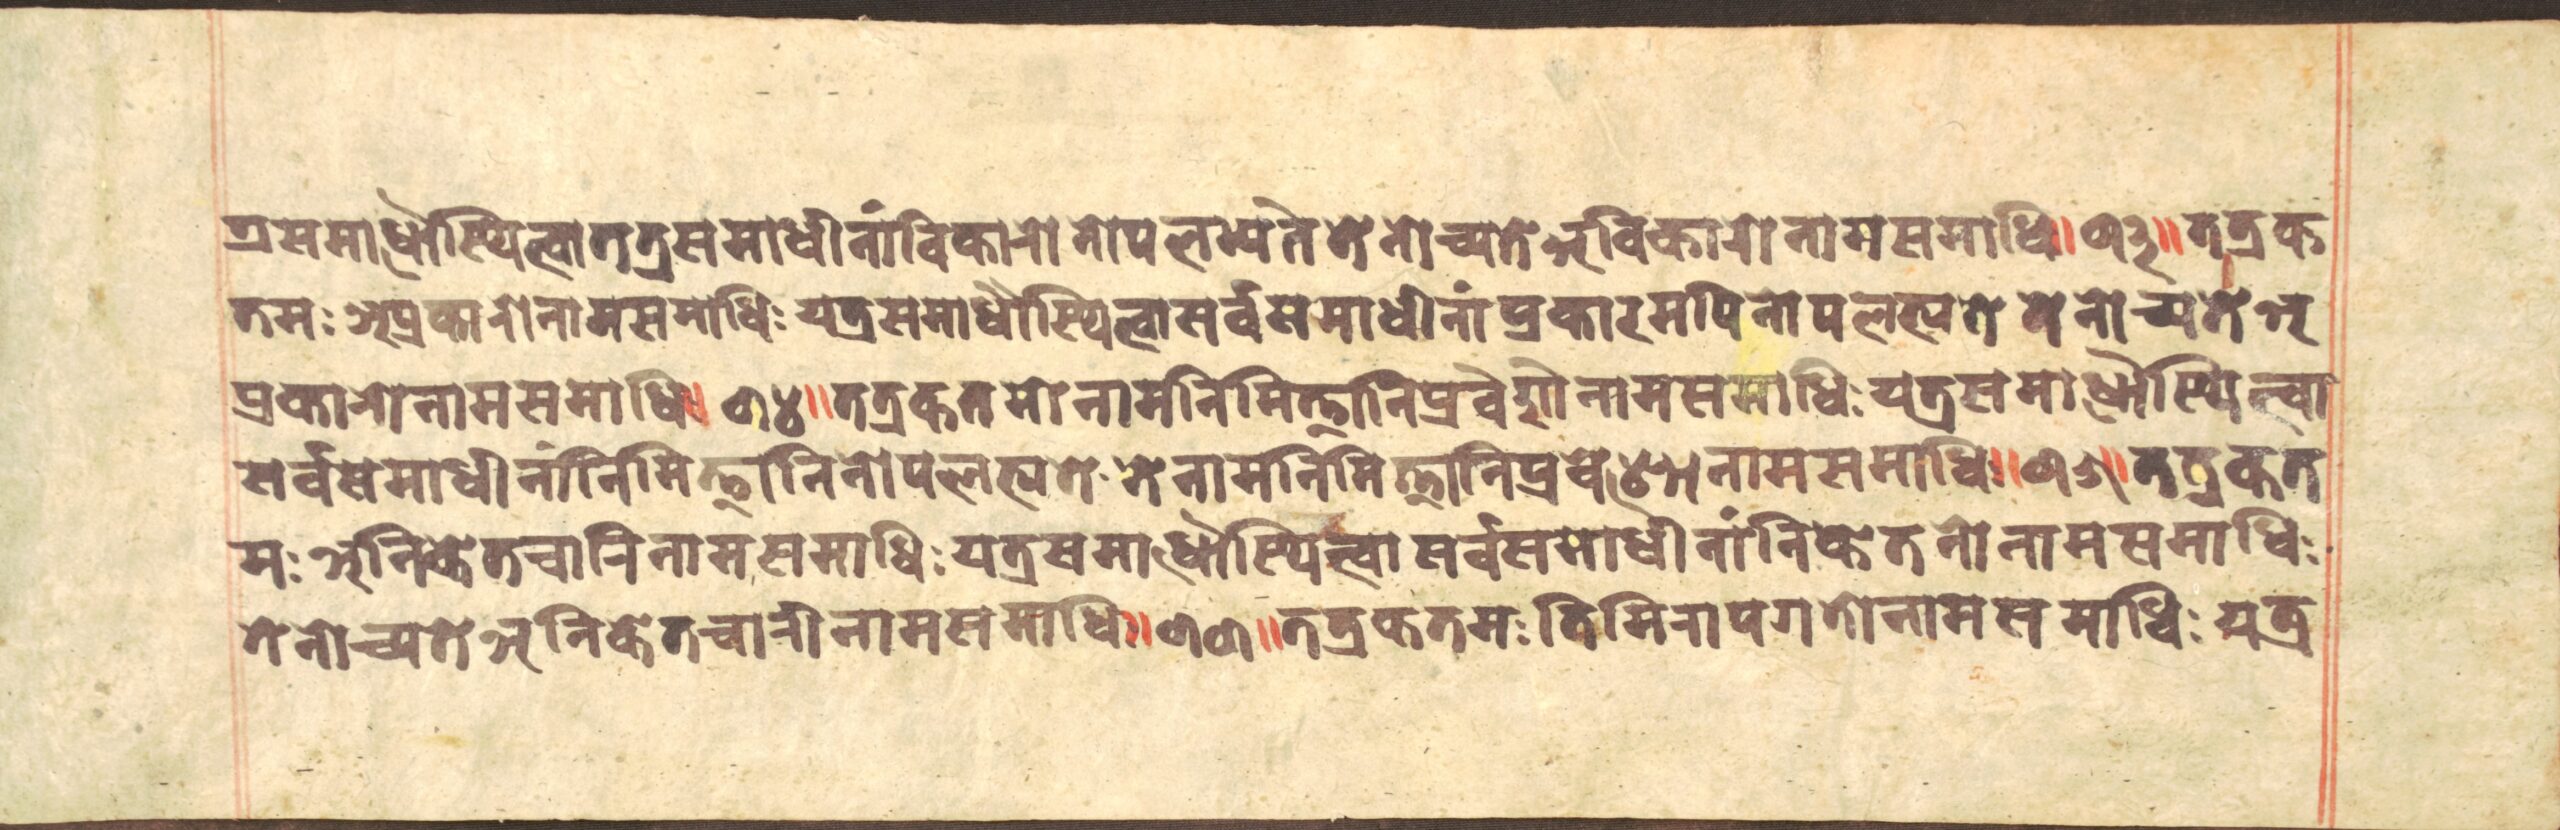 त्रसमाधौस्थित्वाततत्रसमाधीनांविकारोनोपलभ्यतेतेनोच्यतेअविकारोनामसमाधिः॥७३॥तत्रक
तमःअप्रकारोनामसमाधिःयत्रसमाधौस्थित्वासर्वसमाधीनांप्रकारमपिनोपलभ्यतेतेनोच्यतेअ
प्रकारोनामसमाधिः॥७४॥तत्रकतमोनामनिमित्तानिप्रवेशोनामसमाधिःयत्रसमाधौस्थित्वा
सर्वसमाधीनांनिमित्तानिनोपलभ्यतेतेनामनिमित्तानिप्रवेशोनामसमाधिः॥७५॥तत्रकत
मःअनिकेतचारिनामसमाधिःयत्रसमाधौस्थित्वासर्वसमाधीनांनिकेतनोनामसमाधिः
तेनोच्यतेअनिकेतचारीनामसमाधिः॥७७॥तत्रकतमःतिमिरापगतोनामसमाधिःयत्र